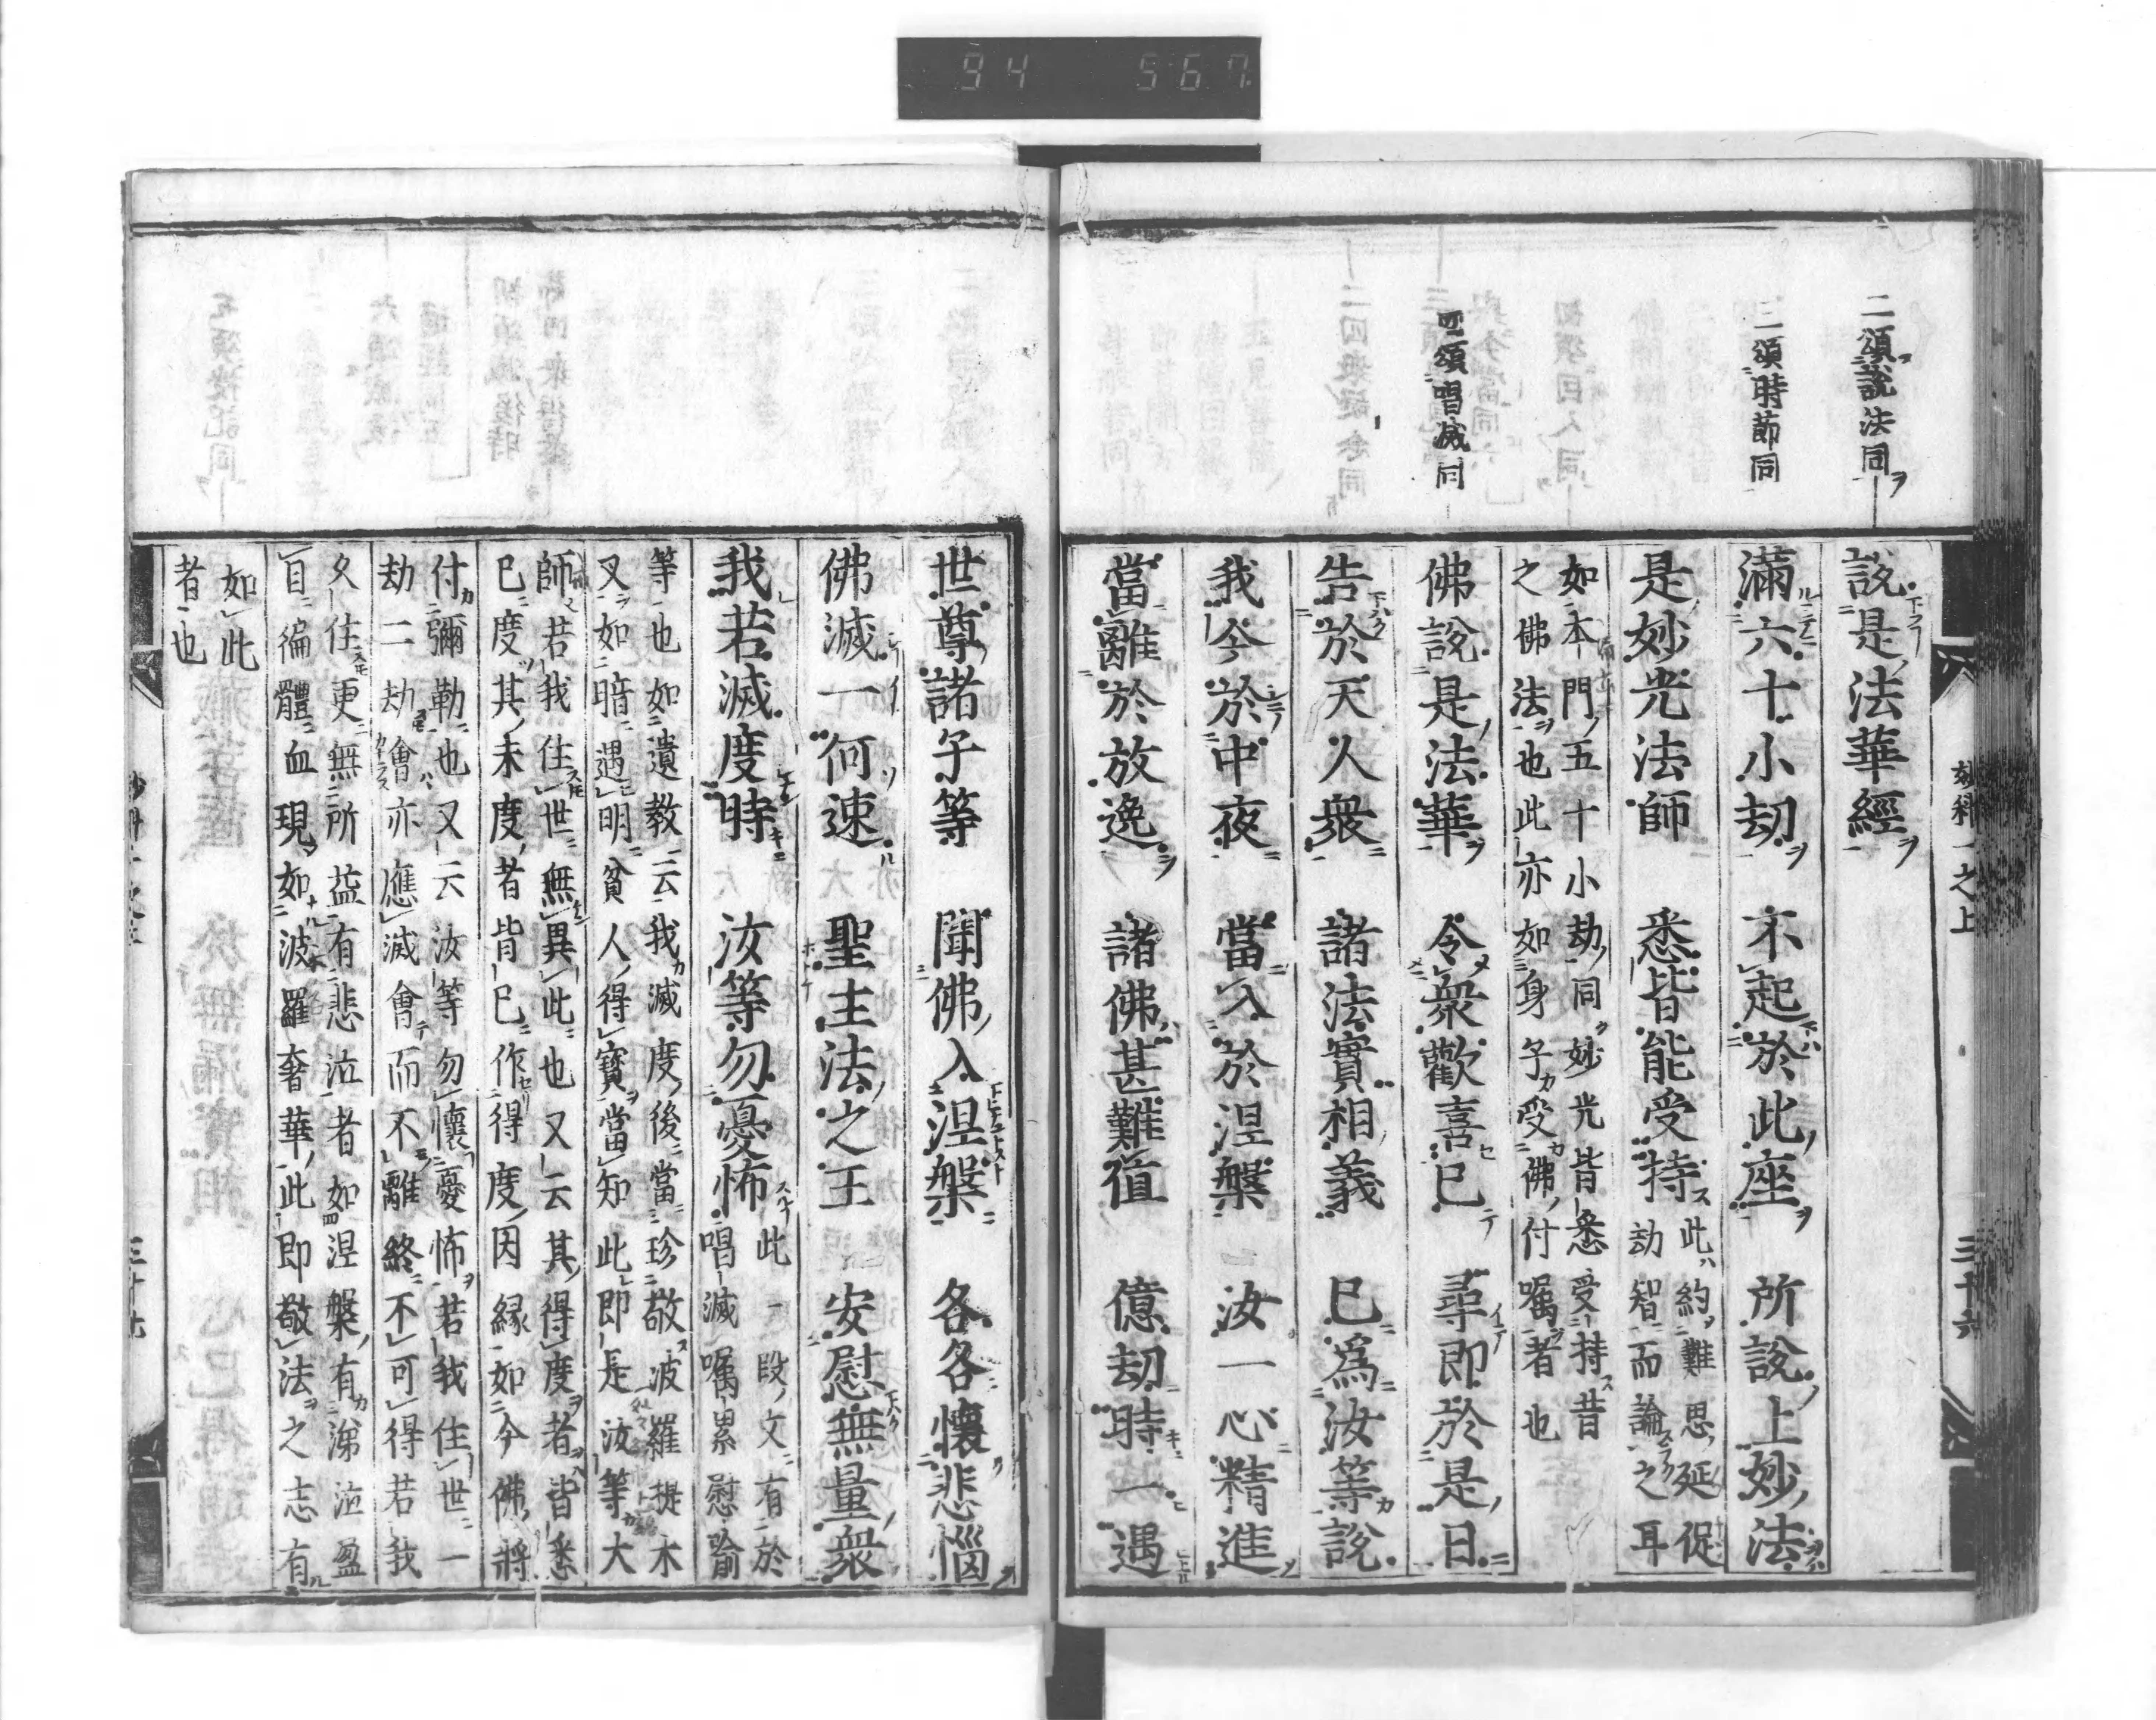 94 567
二頌説法同
三頌時節同
四頌唱滅同
説是法華經
滿六十小劫 不起於此座 所説上妙法
是妙光法師 悉皆能受持
此約難思延促
劫智而論之耳
如本門五十小劫同妙光皆悉受持昔
之佛法也此亦如身子受佛付囑者也
佛説是法華 令衆歡喜已 尋即於是日
告於天人衆 諸法實相義 已爲汝等説
我今於中夜 當入於涅槃 汝一心精進
當離於放逸 諸佛甚難値 億劫時一遇
妙科一之上
三十六
世尊諸子等 聞佛入涅槃 各各懷悲惱
佛滅一何速 聖主法之王 安慰無量衆
我若滅度時 汝等勿憂怖
此一段文有於
唱滅囑累慰喩
等也如遺教云我滅度後當珍敬波羅提木
叉如暗遇明貧人得寶當知此即是汝等大
師若我住世無異此也又云其得度者皆悉
已度其未度者皆已作得度因縁如今佛將
付彌勒也又云汝等勿懷憂怖若我住世一
劫二劫會亦應滅會而不離終不可得若我
久住更無所益有悲泣者如涅槃有涕泣盈
目徧體血現如波羅奢華此即敬法之志有
如此
者也
三十七